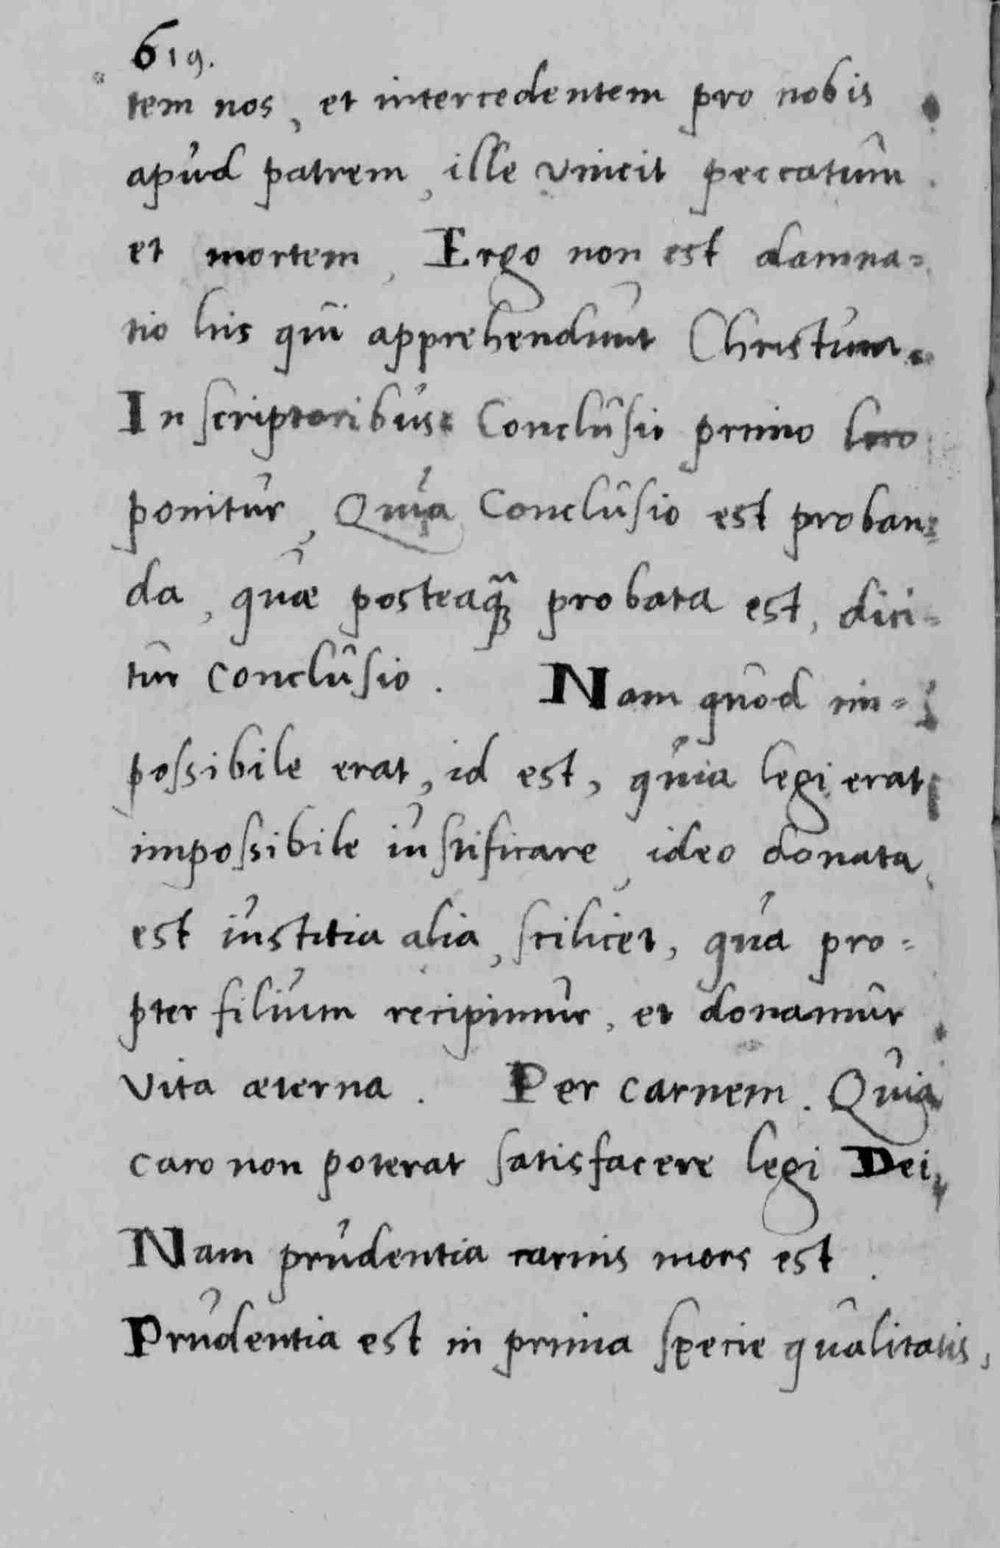 619.
tem nos, et intercedentem pro nobis
apud patrem, ille vincit peccatum
et mortem, Ergo non est damna=
tio his qui apprehendunt Christum.
In scriptoribus Conclusio primo loco
ponitur, Quia Conclusio est proban=
da, quae posteaq̃ probata est, dici=
tur conclusio. Nam quod im=
possibile erat, id est, quia legi erat
impossibile iustificare, ideo donata
est iustitia alia, scilicet, qua pro=
pter filium recipimur, et donamur
vita æterna. Per carnem. Quia
caro non poterat satisfacere legi Dei,
Nam prudentia carnis mors est.
Prudentia est in prima specie qualitatis,